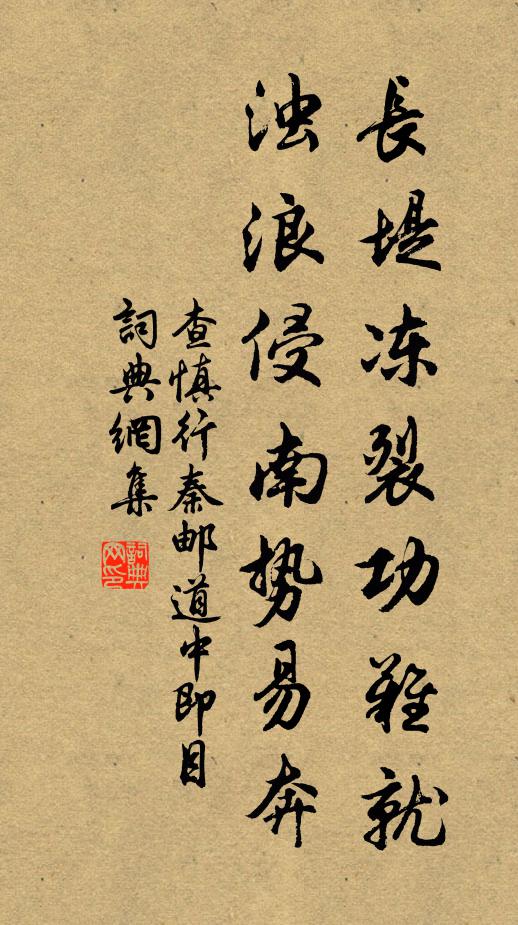 長堤冻裂功難就
浊浪侵南势易奔
查慎行秦邮道中即目
詞典網集
詞典网印